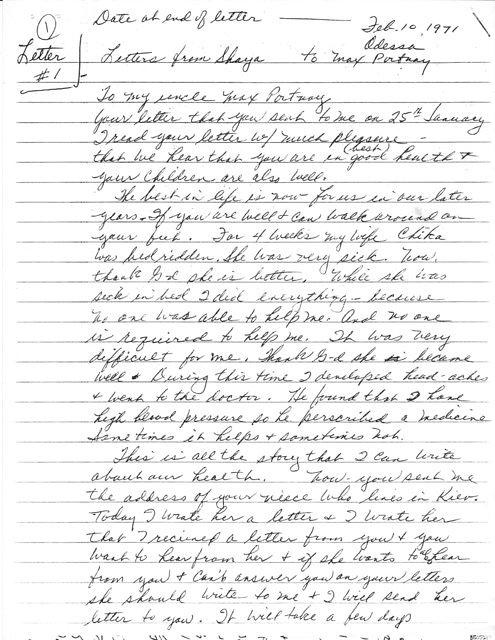 ① Date at end of letter — Feb. 10, 1971
Odessa
Letter #1 Letters from Shaya to Max Portnay
To my uncle Max Portnay
Your letter that you sent to me on 25th January
I read your letter w/ much pleasure -
that we hear that you are in good (best) health +
your children are also well.
The best in life is now for us in our later
years. If you are well + can walk around on
your feet. For 4 weeks my wife Chika
was bedridden. She was very sick. Now,
thank G-d she is better. While she was
sick in bed I did everything - because
no one was able to help me. And no one
is required to help me. It was very
difficult for me. Thank G-d she became
well + During this time I developed head-aches
+ went to the doctor. He found that I have
high blood pressure so he perscribed a medicine
Sometimes it helps + sometimes not.
This is all the story that I can write
about our health. Now - you sent me
the address of your niece who lives in Kiev.
Today I wrote her a letter + I wrote her
that I recieved a letter from you + you
want to hear from her + if she wants to hear
from you + can't answer you on your letters
she should write to me + I will send her
letter to you. It will take a few days